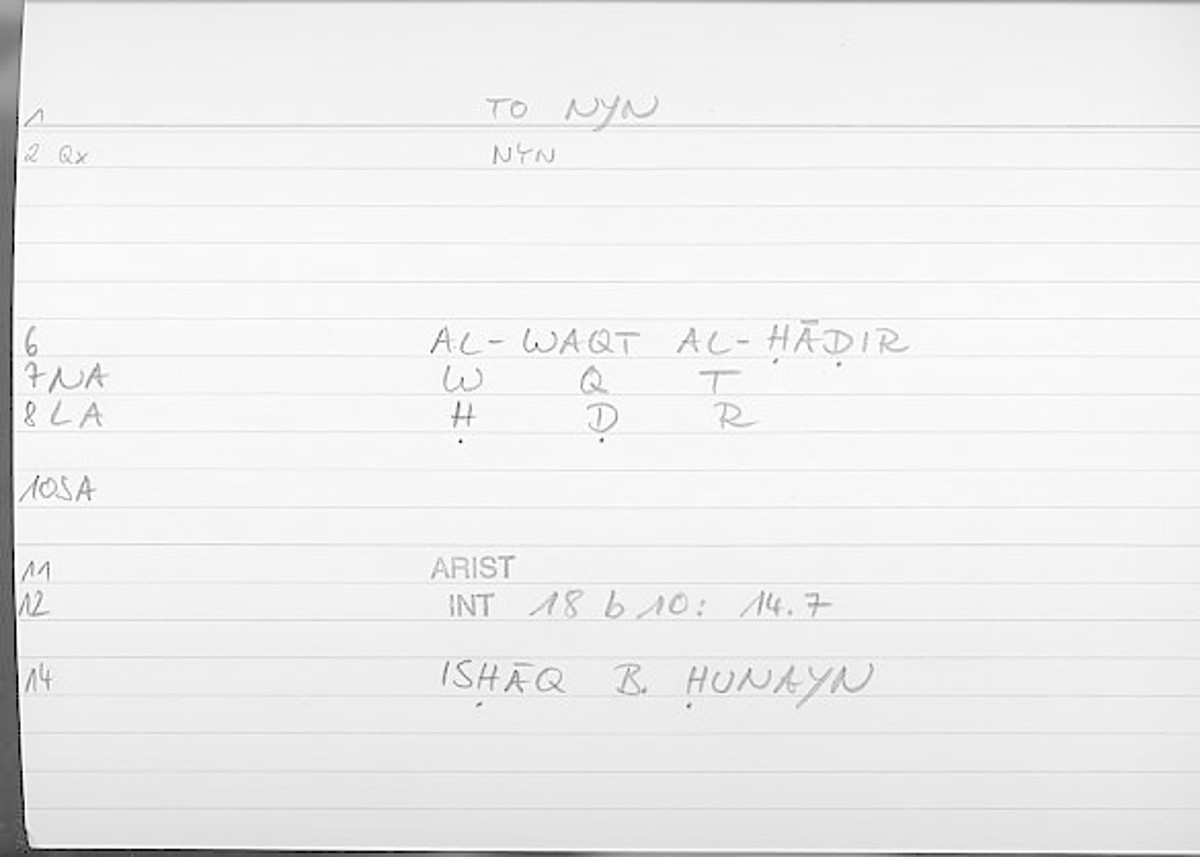 1 TO NYN
2 Qx NYN
6 AL-WAQT AL-ḤĀḌIR
7 NA W Q T
8 LA Ḥ Ḍ R
10 SA
11 ARIST
12 INT 18 b 10: 14.7
14 ISḤĀQ B. ḤUNAYN